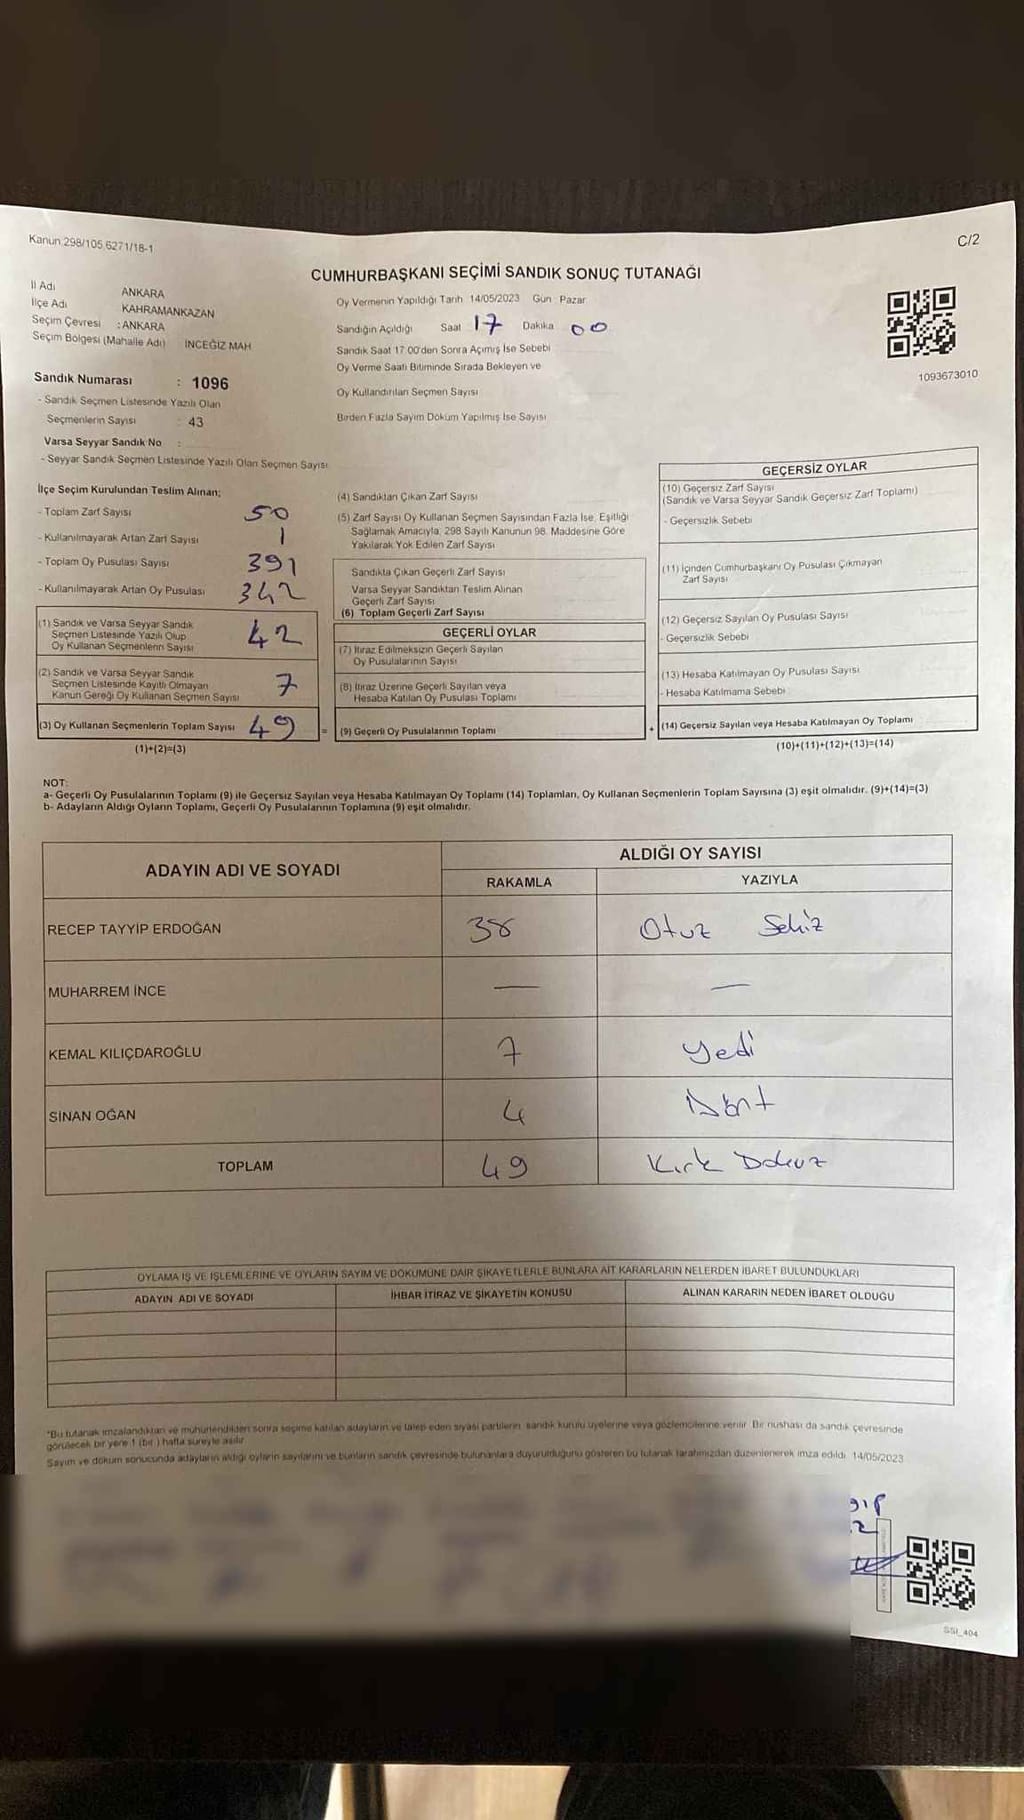 Kanun 298/105,6271/18-1
C/2
CUMHURBAŞKANI SEÇİMİ SANDIK SONUÇ TUTANAĞI
İl Adı ANKARA
İlçe Adı KAHRAMANKAZAN
Seçim Çevresi : ANKARA
Seçim Bölgesi (Mahalle Adı) İNCEĞİZ MAH
Oy Vermenin Yapıldığı Tarih 14/05/2023 Gün Pazar
Sandığın Açıldığı Saat 17 Dakika 00
Sandık Saat 17 00'den Sonra Açımış İse Sebebi
Oy Verme Saati Bitiminde Sırada Bekleyen ve
Oy Kullandırılan Seçmen Sayısı
Birden Fazla Sayım Döküm Yapılmış İse Sayısı
1093673010
Sandık Numarası : 1096
- Sandık Seçmen Listesinde Yazılı Olan
Seçmenlerin Sayısı : 43
Varsa Seyyar Sandık No :
- Seyyar Sandık Seçmen Listesinde Yazılı Olan Seçmen Sayısı
İlçe Seçim Kurulundan Teslim Alınan;
- Toplam Zarf Sayısı 50
- Kullanılmayarak Artan Zarf Sayısı 1
- Toplam Oy Pusulası Sayısı 391
- Kullanılmayarak Artan Oy Pusulası 342
(1) Sandık ve Varsa Seyyar Sandık
Seçmen Listesinde Yazılı Olup
Oy Kullanan Seçmenlerin Sayısı 42
(2) Sandık ve Varsa Seyyar Sandık
Seçmen Listesinde Kayıtlı Olmayan
Kanun Gereği Oy Kullanan Seçmen Sayısı 7
(3) Oy Kullanan Seçmenlerin Toplam Sayısı 49 =
(1)+(2)=(3)
(4) Sandıktan Çıkan Zarf Sayısı
(5) Zarf Sayısı Oy Kullanan Seçmen Sayısından Fazla İse, Eşitliği
Sağlamak Amacıyla, 298 Sayılı Kanunun 98. Maddesine Göre
Yakılarak Yok Edilen Zarf Sayısı
Sandıkta Çıkan Geçerli Zarf Sayısı
Varsa Seyyar Sandıktan Teslim Alınan
Geçerli Zarf Sayısı
(6) Toplam Geçerli Zarf Sayısı
GEÇERLİ OYLAR
(7) İtiraz Edilmeksizin Geçerli Sayılan
Oy Pusulalarının Sayısı
(8) İtiraz Üzerine Geçerli Sayılan veya
Hesaba Katılan Oy Pusulası Toplamı
(9) Geçerli Oy Pusulalarının Toplamı +
GEÇERSİZ OYLAR
(10) Geçersiz Zarf Sayısı
(Sandık ve Varsa Seyyar Sandık Geçersiz Zarf Toplamı)
- Geçersizlik Sebebi
(11) İçinden Cumhurbaşkanı Oy Pusulası Çıkmayan
Zarf Sayısı
(12) Geçersiz Sayılan Oy Pusulası Sayısı
- Geçersizlik Sebebi
(13) Hesaba Katılmayan Oy Pusulası Sayısı
- Hesaba Katılmama Sebebi
(14) Geçersiz Sayılan veya Hesaba Katılmayan Oy Toplamı
(10)+(11)+(12)+(13)=(14)
NOT:
a- Geçerli Oy Pusulalarının Toplamı (9) ile Geçersiz Sayılan veya Hesaba Katılmayan Oy Toplamı (14) Toplamları, Oy Kullanan Seçmenlerin Toplam Sayısına (3) eşit olmalıdır. (9)+(14)=(3)
b- Adayların Aldığı Oyların Toplamı, Geçerli Oy Pusulalarının Toplamına (9) eşit olmalıdır.
ADAYIN ADI VE SOYADI
ALDIĞI OY SAYISI
RAKAMLA YAZIYLA
RECEP TAYYİP ERDOĞAN 38 Otuz Sekiz
MUHARREM İNCE — —
KEMAL KILIÇDAROĞLU 7 Yedi
SİNAN OĞAN 4 Dört
TOPLAM 49 Kırk Dokuz
OYLAMA İŞ VE İŞLEMLERİNE VE OYLARIN SAYIM VE DÖKÜMÜNE DAİR ŞİKAYETLERLE BUNLARA AİT KARARLARIN NELERDEN İBARET BULUNDUKLARI
ADAYIN ADI VE SOYADI İHBAR İTİRAZ VE ŞİKAYETİN KONUSU ALINAN KARARIN NEDEN İBARET OLDUĞU
*Bu tutanak imzalandıktan ve mühürlendikten sonra seçime katılan adayların ve talep eden siyasi partilerin, sandık kurulu üyelerine veya gözlemcilerine verilir. Bir nüshası da sandık çevresinde
görülecek bir yere 1 (bir ) hafta süreyle asılır
Sayım ve döküm sonucunda adayların aldığı oyların sayılarını ve bunların sandık çevresinde bulunanlara duyurulduğunu gösteren bu tutanak tarafımızdan düzenlenerek imza edildi. 14/05/2023
SSI_404